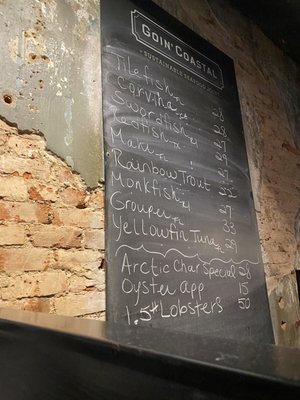 GOIN' COASTAL
SUSTAINABLE SEAFOOD JOINT
Tilefish FL 28
Corvina 28
Swordfish FL 27
Redfish TX 29
Mahi FL 27
Rainbow Trout 22
Monkfish 27
Grouper FL 33
Yellowfin Tuna FL 29
Arctic Char Special 28
Oyster app 15
1.5# Lobsters 50